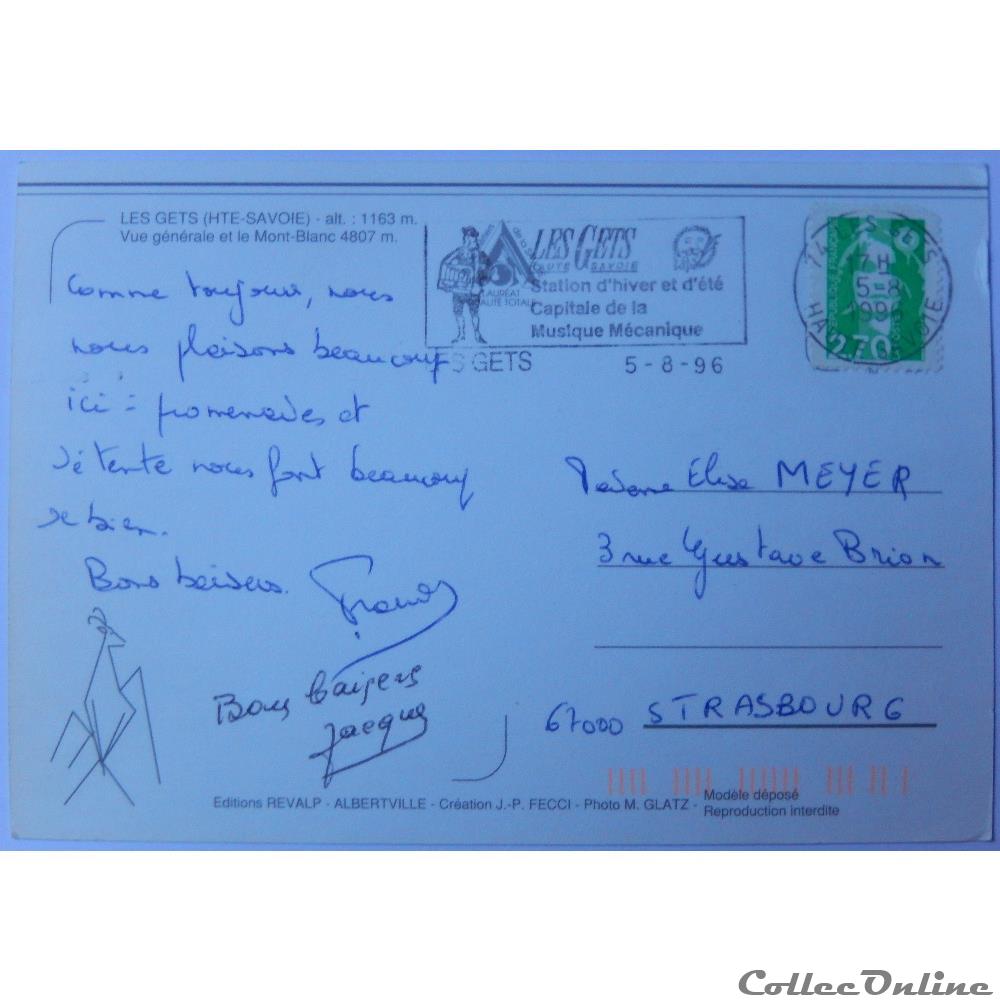 LES GETS (HTE-SAVOIE) - alt. : 1163 m.
Vue générale et le Mont-Blanc 4807 m.
Comme toujours, nous
nous plaisons beaucoup
ici : promenades et
détente nous font beaucoup
de bien.
Bons baisers.
Bons baisers
Jacques
LAURÉAT
QUALITÉ TOTALE
LES GETS
HAUTE SAVOIE
Station d'hiver et d'été
Capitale de la
Musique Mécanique
LES GETS 5-8-96
74 LES GETS
17H
5-8
1996
HAUTE SAVOIE
2,70
Madame Elise MEYER
3 rue Gustave Brion
67000 STRASBOURG
Editions REVALP - ALBERTVILLE - Création J.-P. FECCI - Photo M. GLATZ -
Modèle déposé
Reproduction interdite
CollecOnline